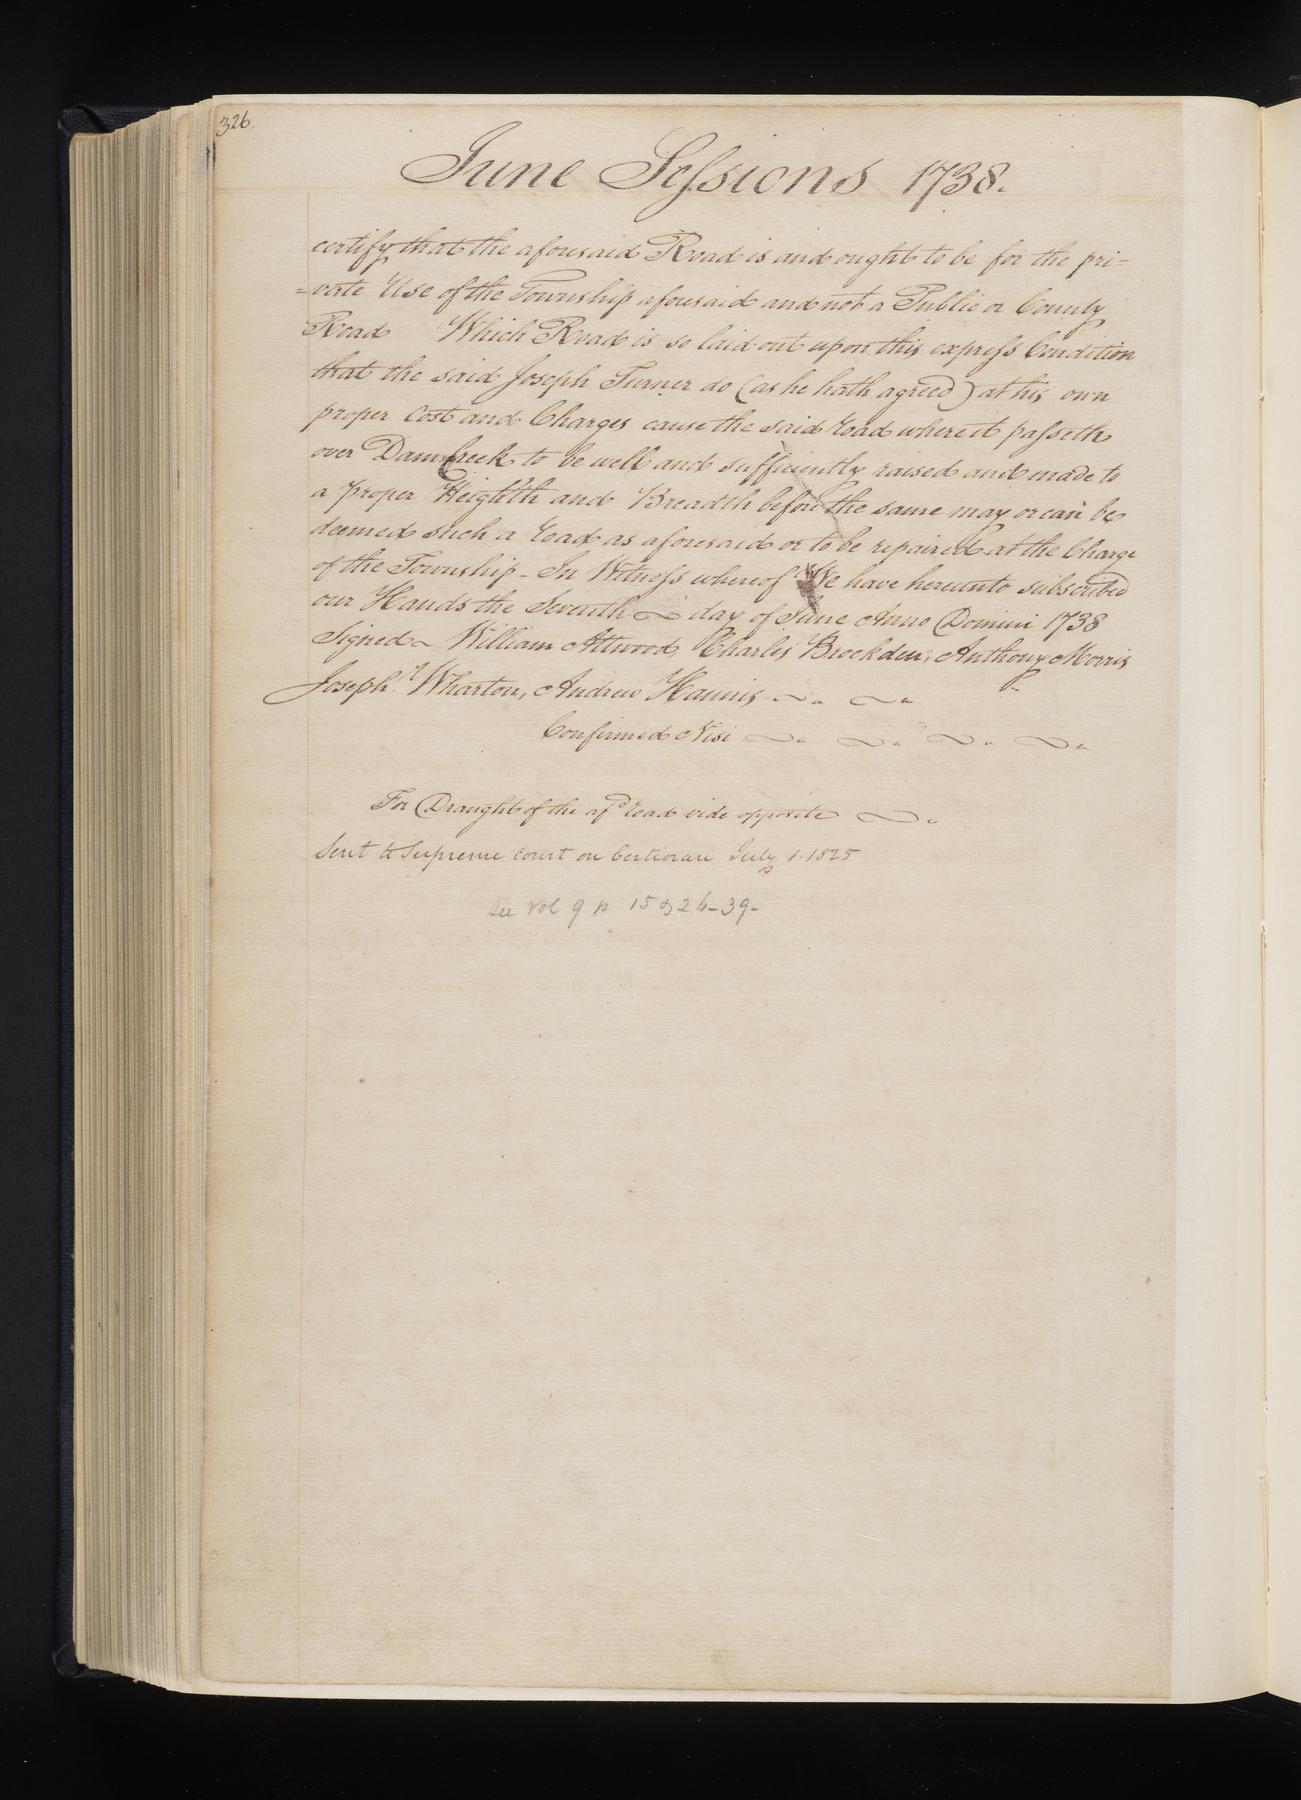 326.
June Sessions 1738.
certify that the aforesaid Road is and ought to be for the pri=
=vate Use of the Township aforesaid and not a Public or County
Road Which Road is so laid out upon this express Condition
that the said Joseph Turner do (as he hath agreed) at his own
proper Cost and Charges cause the said Road where it passeth
over Dam Creek to be well and sufficiently raised and made to
a proper Heighth and Breadth before the same may or can be
deemed such a Road as aforesaid or to be repaired at the Charge
of the Township - In Witness whereof We have hereunto subscribed
our Hands the Seventh day of June Anno Domini 1738
Signed William Attwood, Charles Brockden, Anthony Morris
Joseph Wharton, Andrew Hannis
Confirmed Nisi
For Draught of the afd Road vide opposite
Sent to Supreme Court on Certiorari July 1. 1825
See Vol 9 p 15 & 26-39-